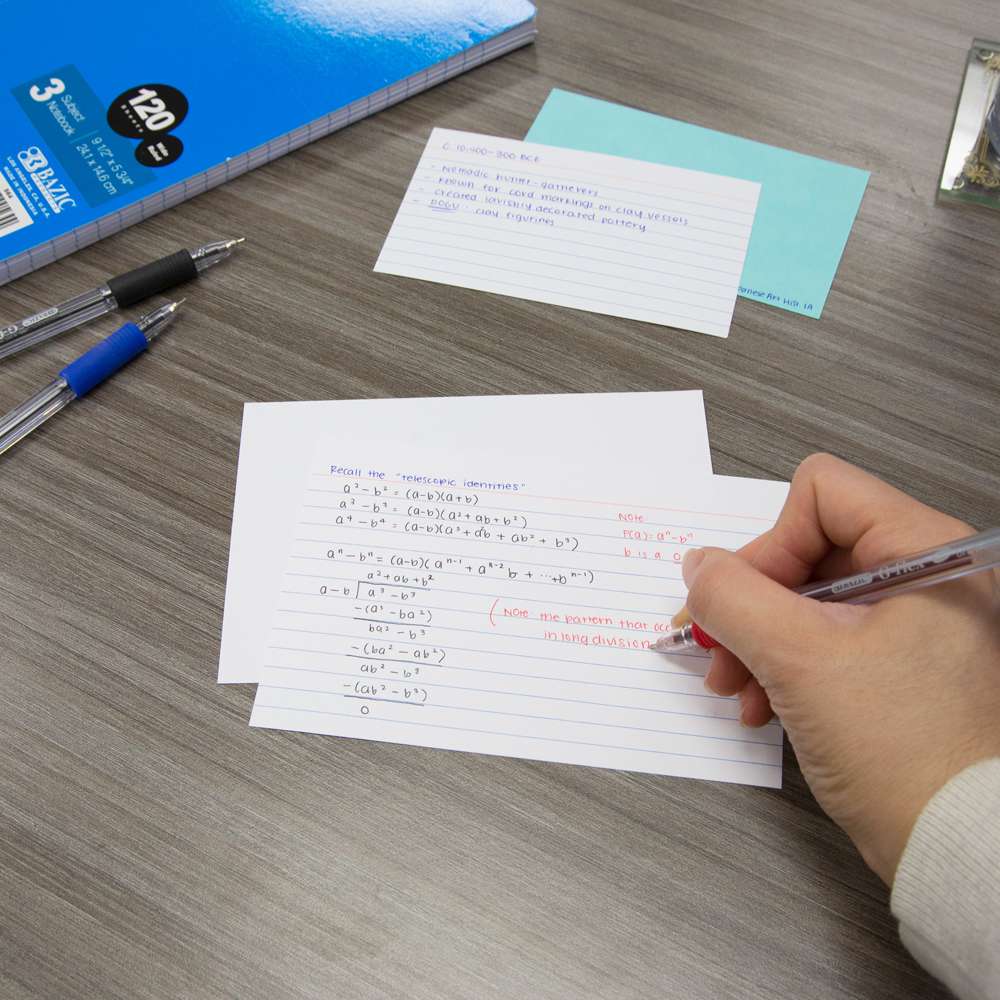 3 Subject
Notebook
9 1/2" x 5 3/4"
24.1 x 14.6 cm
120
Sheets
Wide
Ruled
BAZIC
LOS ANGELES, CA, U.S.A.
MADE IN INDONESIA
C. 10,400-300 BCE
- Nomadic hunter-gatherers
- Known for cord markings on clay vessels
- Created lavishly decorated pottery
- DOGU: clay figurines
Art Hist 1A
Recall the "telescopic identities"
a² - b² = (a-b)(a+b)
a³ - b³ = (a-b)(a² + ab + b²)
a⁴ - b⁴ = (a-b)(a³ + a²b + ab² + b³)
aⁿ - bⁿ = (a-b)(aⁿ⁻¹ + aⁿ⁻²b + ... + bⁿ⁻¹)
a² + ab + b²
a - b a³ - b³
-(a³ - ba²)
ba² - b³
-(ba² - ab²)
ab² - b³
-(ab² - b³)
0
Note
P(a) = aⁿ - bⁿ
b is a
(Note the pattern that
in long division
G-Flex